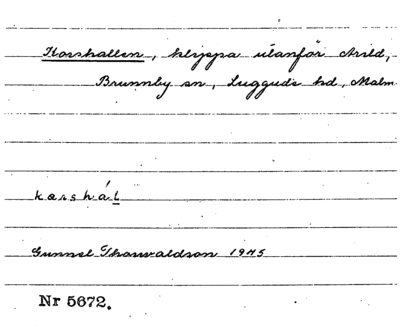 Korshallen, klippa utanför Arild,
Brunnby sn, Luggude hd, Malm
kɶrshál
Gunnel Thorvaldson 1945
Nr 5672.